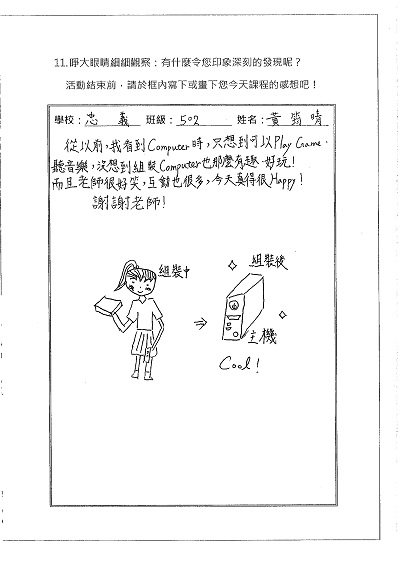 11.睜大眼睛細細觀察：有什麼令您印象深刻的發現呢？
活動結束前，請於框內寫下或畫下您今天課程的感想吧！
學校：忠 義 班級：502 姓名：黃 筠 晴
從以前，我看到Computer時，只想到可以Play Game、
聽音樂，沒想到組裝Computer也那麼有趣、好玩！
而且老師很好笑，互動也很多，今天真得很Happy！
謝謝老師！
組裝中
組裝後
主機
Cool！